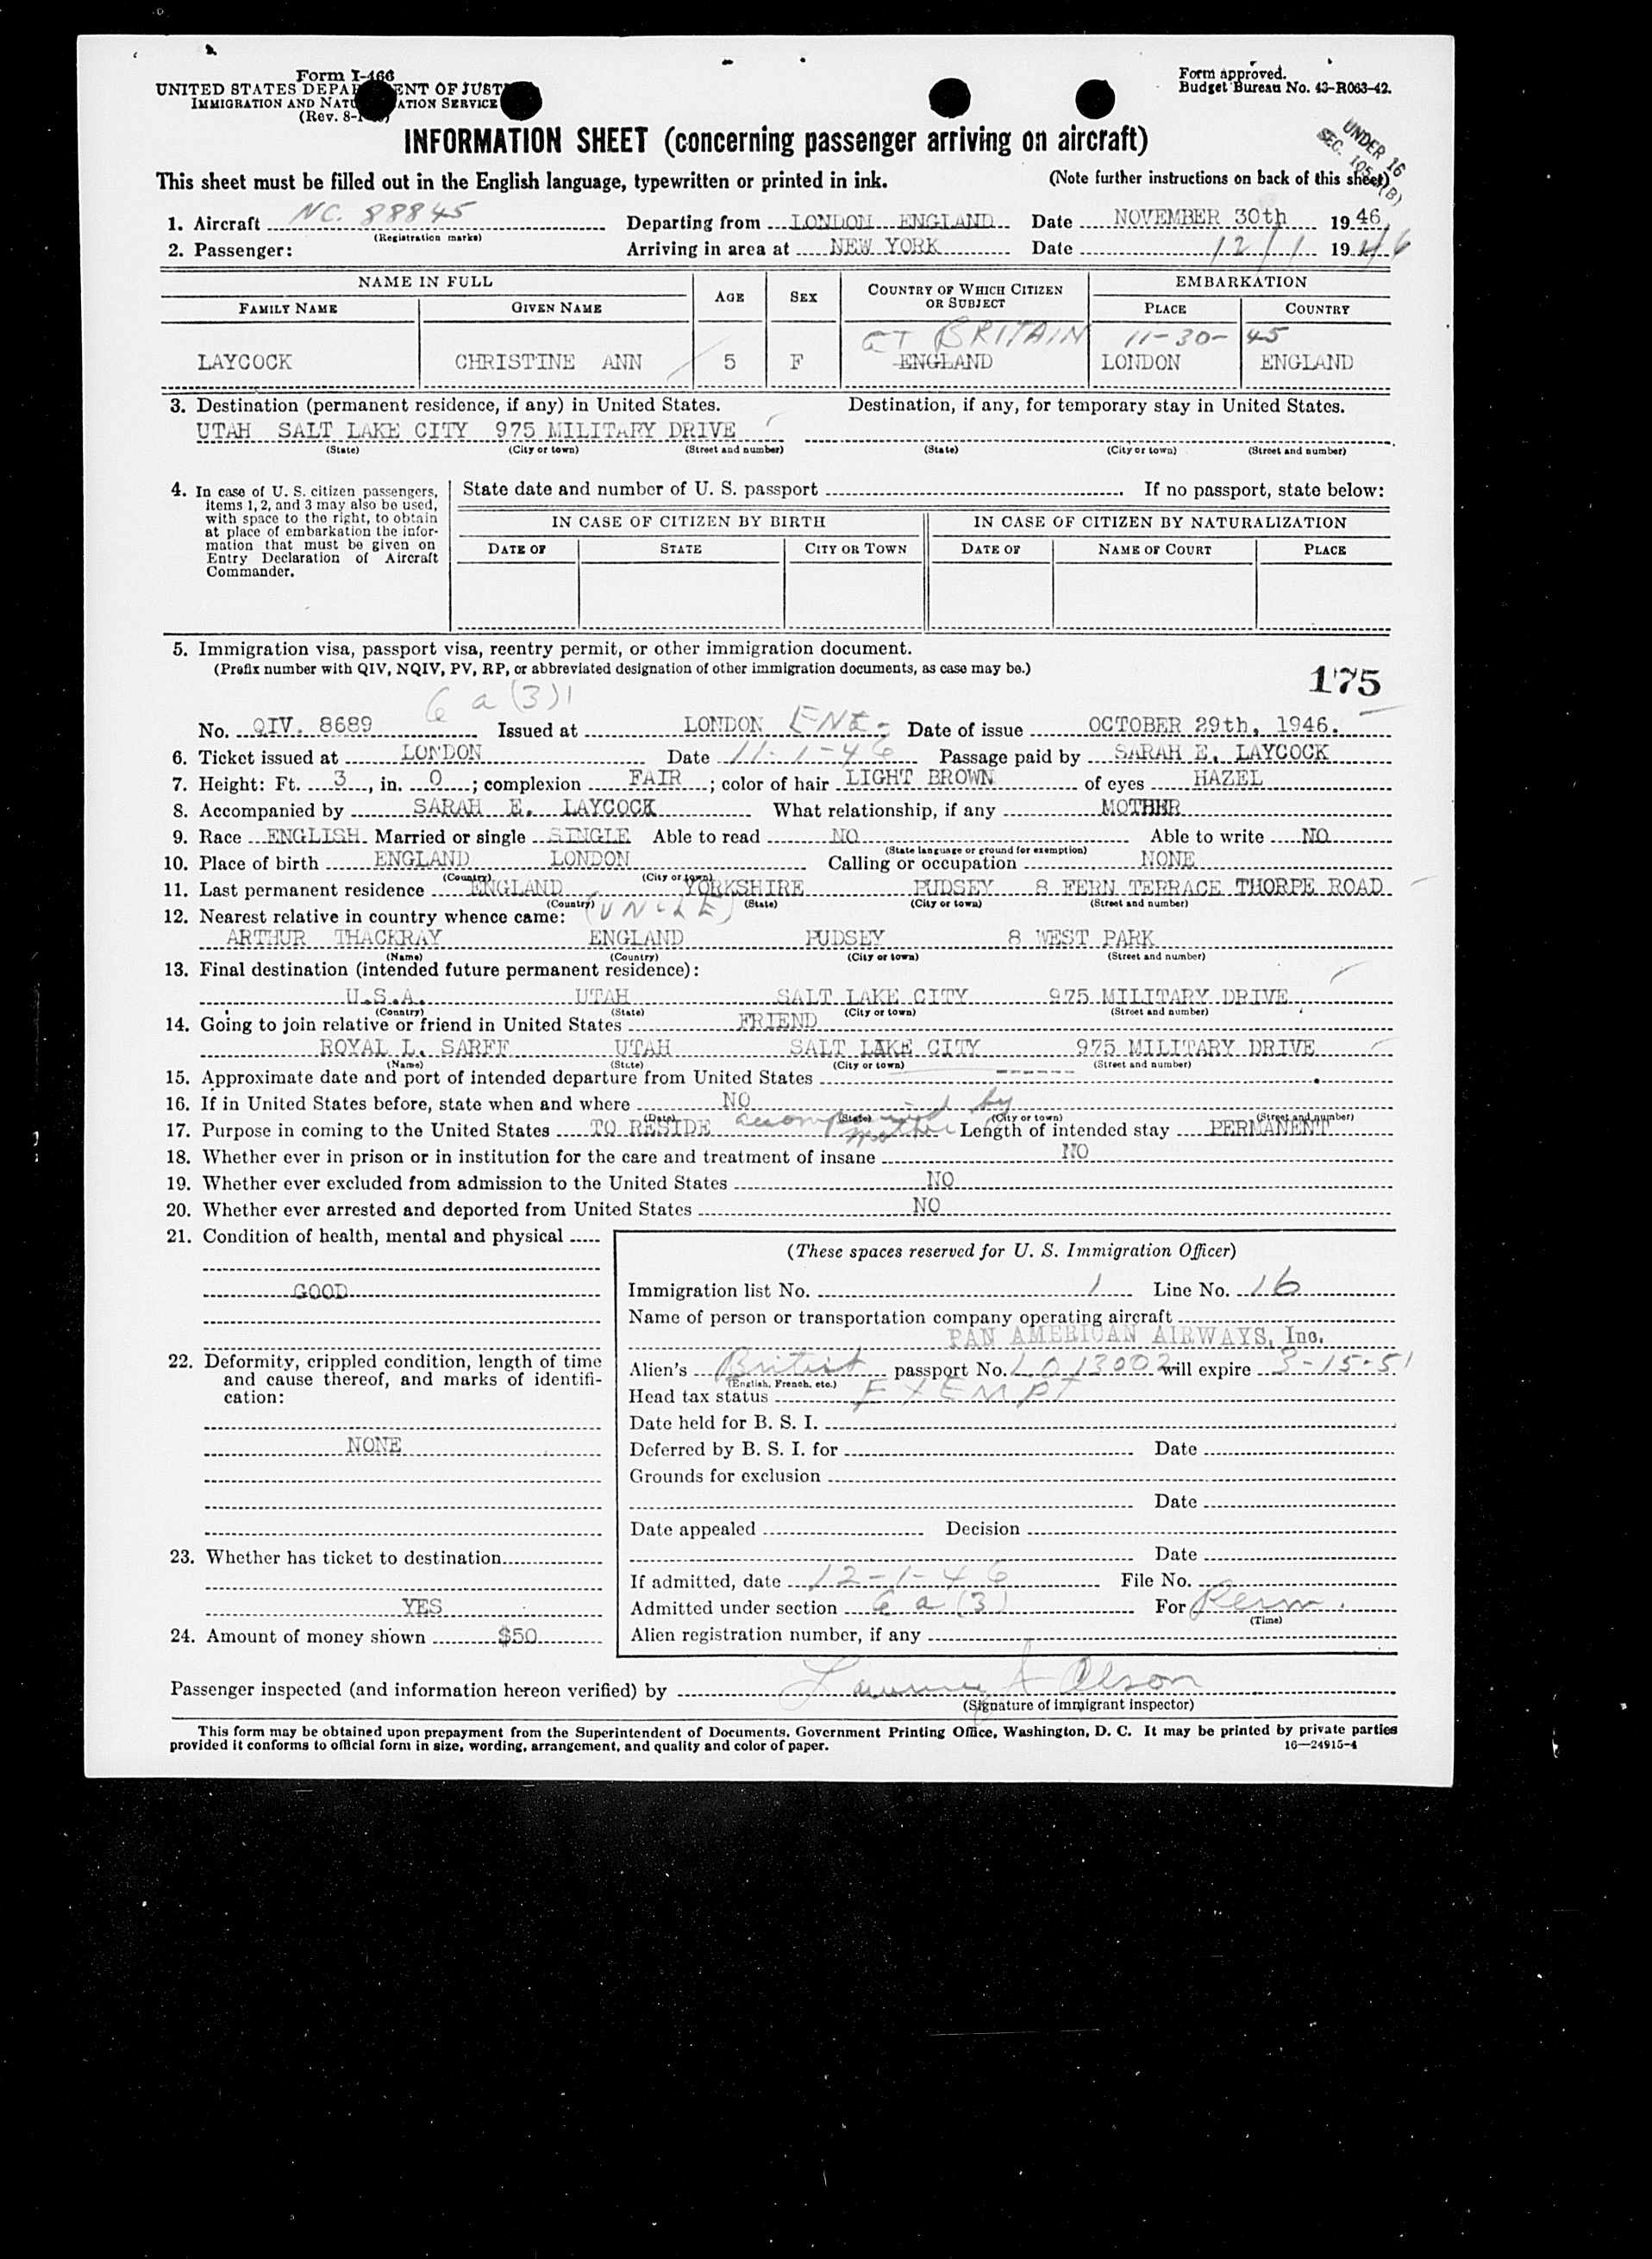 Form I-466
UNITED STATES DEPARTMENT OF JUST
IMMIGRATION AND NATU ATION SERVICE
(Rev. 8-1
Form approved.
Budget Bureau No. 43-R063-42.
INFORMATION SHEET (concerning passenger arriving on aircraft)
UNDER 16
SEC. 105 (B)
This sheet must be filled out in the English language, typewritten or printed in ink. (Note further instructions on back of this sheet)
1. Aircraft NC. 88845 Departing from LONDON ENGLAND Date NOVEMBER 30th 1946
(Registration marks)
2. Passenger: Arriving in area at NEW YORK Date 12/1 1946
NAME IN FULL AGE SEX COUNTRY OF WHICH CITIZEN OR SUBJECT EMBARKATION
FAMILY NAME GIVEN NAME PLACE COUNTRY
GT BRITAIN 11-30-45
LAYCOCK CHRISTINE ANN 5 F ENGLAND LONDON ENGLAND
3. Destination (permanent residence, if any) in United States. Destination, if any, for temporary stay in United States.
UTAH SALT LAKE CITY 975 MILITARY DRIVE
(State) (City or town) (Street and number) (State) (City or town) (Street and number)
4. In case of U. S. citizen passengers, items 1, 2, and 3 may also be used, with space to the right, to obtain at place of embarkation the information that must be given on Entry Declaration of Aircraft Commander.
State date and number of U. S. passport . If no passport, state below:
IN CASE OF CITIZEN BY BIRTH IN CASE OF CITIZEN BY NATURALIZATION
DATE OF STATE CITY OR TOWN DATE OF NAME OF COURT PLACE
5. Immigration visa, passport visa, reentry permit, or other immigration document.
(Prefix number with QIV, NQIV, PV, RP, or abbreviated designation of other immigration documents, as case may be.)
175
6 a (3)
No. QIV. 8689 Issued at LONDON ENG- Date of issue OCTOBER 29th, 1946.
6. Ticket issued at LONDON Date 11-1-46 Passage paid by SARAH E. LAYCOCK
7. Height: Ft. 3, in. 0; complexion FAIR; color of hair LIGHT BROWN of eyes HAZEL
8. Accompanied by SARAH E. LAYCOCK What relationship, if any MOTHER
9. Race ENGLISH Married or single SINGLE Able to read NO Able to write NO
(State language or ground for exemption)
10. Place of birth ENGLAND LONDON Calling or occupation NONE
(Country) (City or town)
11. Last permanent residence ENGLAND YORKSHIRE PUDSEY 8 FERN TERRACE THORPE ROAD
(Country) (State) (City or town) (Street and number)
12. Nearest relative in country whence came: (UNCLE)
ARTHUR THACKRAY ENGLAND PUDSEY 8 WEST PARK
(Name) (Country) (City or town) (Street and number)
13. Final destination (intended future permanent residence):
U.S.A. UTAH SALT LAKE CITY 975 MILITARY DRIVE
(Country) (State) (City or town) (Street and number)
14. Going to join relative or friend in United States FRIEND
ROYAL L. SARFF UTAH SALT LAKE CITY 975 MILITARY DRIVE
(Name) (State) (City or town) (Street and number)
15. Approximate date and port of intended departure from United States -------
16. If in United States before, state when and where NO
(Date) (State) (City or town) (Street and number)
17. Purpose in coming to the United States TO RESIDE accompanied by mother Length of intended stay PERMANENT
18. Whether ever in prison or in institution for the care and treatment of insane NO
19. Whether ever excluded from admission to the United States NO
20. Whether ever arrested and deported from United States NO
21. Condition of health, mental and physical
GOOD
22. Deformity, crippled condition, length of time and cause thereof, and marks of identification:
NONE
23. Whether has ticket to destination
YES
24. Amount of money shown $50
(These spaces reserved for U. S. Immigration Officer)
Immigration list No. 1 Line No. 16
Name of person or transportation company operating aircraft
PAN AMERICAN AIRWAYS, Inc.
Alien's British passport No. LO13002 will expire 3-15-51
(English, French, etc.)
Head tax status EXEMPT
Date held for B. S. I.
Deferred by B. S. I. for Date
Grounds for exclusion
Date
Date appealed Decision
Date
If admitted, date 12-1-46 File No.
Admitted under section 6 a (3) For Perm.
(Time)
Alien registration number, if any
Passenger inspected (and information hereon verified) by Olson
(Signature of immigrant inspector)
This form may be obtained upon prepayment from the Superintendent of Documents, Government Printing Office, Washington, D. C. It may be printed by private parties
provided it conforms to official form in size, wording, arrangement, and quality and color of paper.
16—24915-4